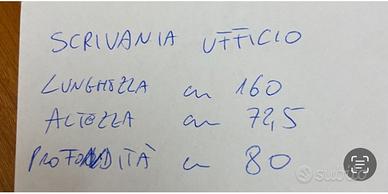 SCRIVANIA UFFICIO
LUNGHEZZA cm 160
ALTEZZA cm 72,5
PROFONDITÀ cm 80
subito